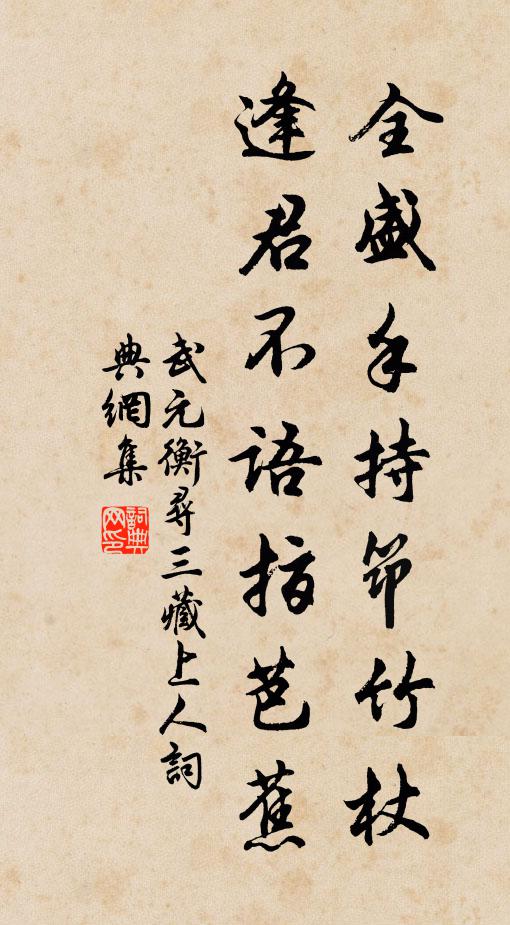 全盛手持筇竹杖
逢君不語指芭蕉
武元衡尋三藏上人詞
典網集
詞典網印